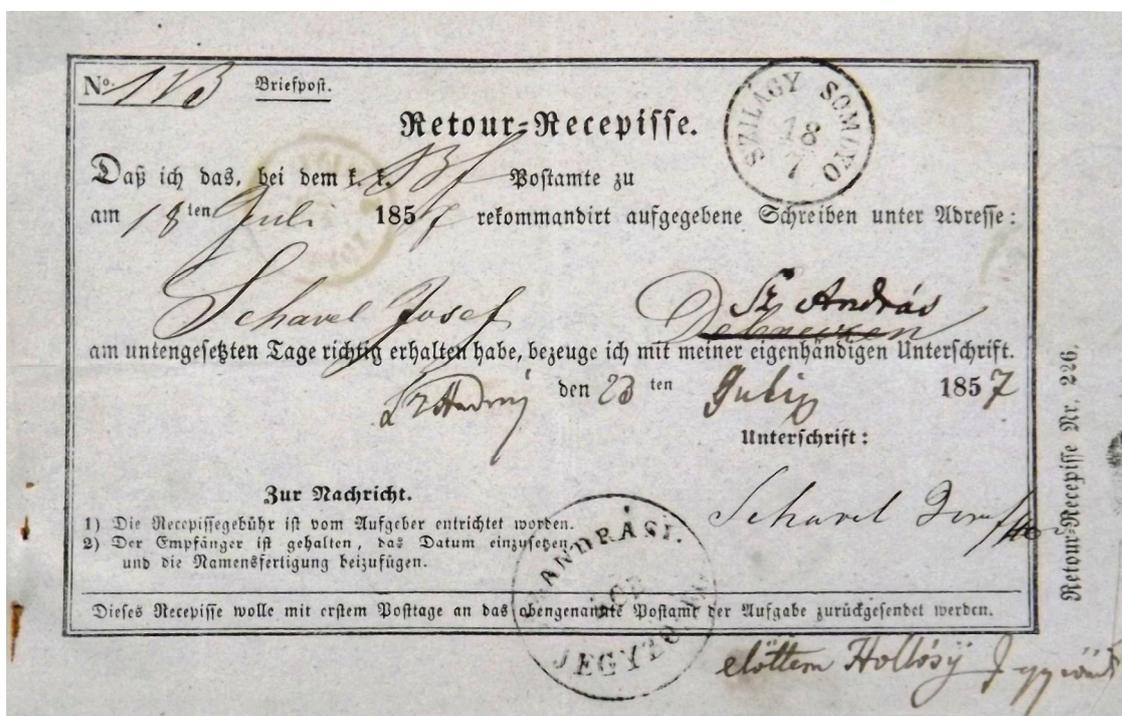 No. 113 Briefpost.
SZILÁGY SOMLYO
18
7
Retour-Recepisse.
Daß ich das, bei dem k. k. Postamte zu
am 18 ten Juli 1857 rekommandirt aufgegebene Schreiben unter Adresse:
Sz András
Schavel Josef Debreczen
am untengesetzten Tage richtig erhalten habe, bezeuge ich mit meiner eigenhändigen Unterschrift.
Sz András den 23 ten July 1857
Unterschrift:
Schavel
Zur Nachricht.
1) Die Recepissegebühr ist vom Aufgeber entrichtet worden.
2) Der Empfänger ist gehalten, das Datum einzusetzen,
und die Namensfertigung beizufügen.
Dieses Recepisse wolle mit erstem Posttage an das obengenannte Postamt der Aufgabe zurückgesendet werden.
ANDRÁSI.
előttem Hollósÿ
Retour-Recepisse Nr. 226.